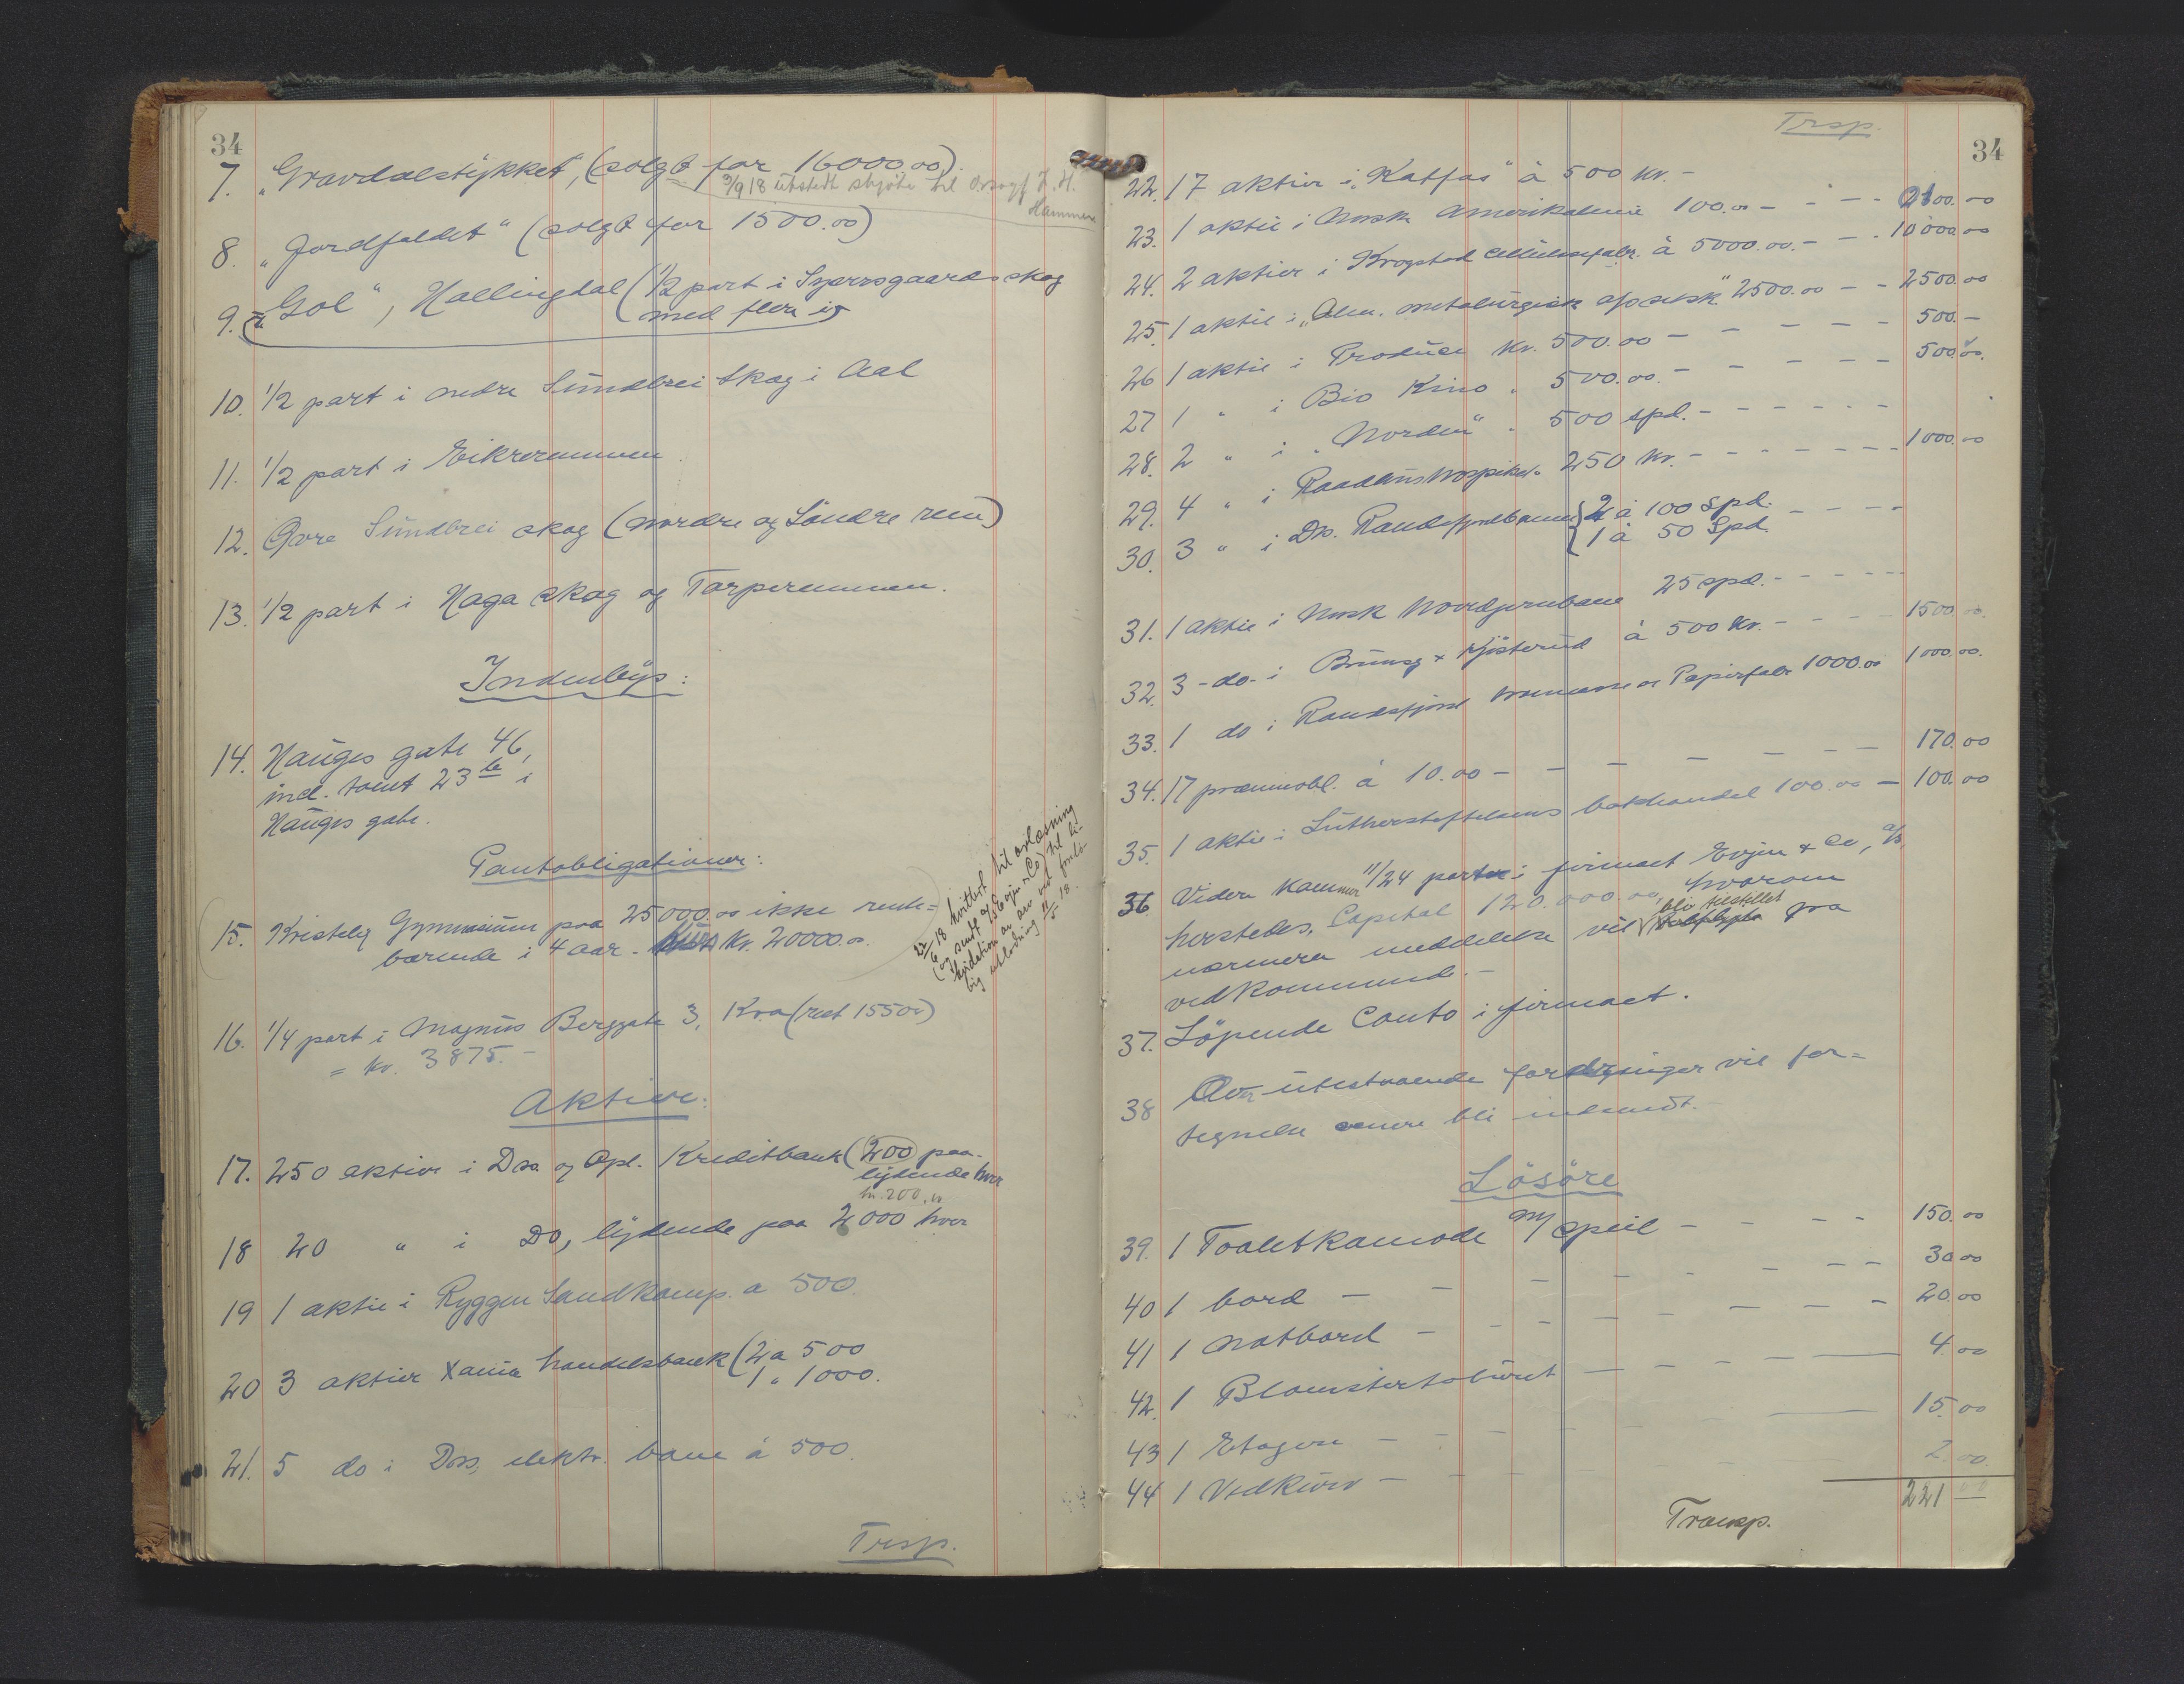 34
7. "Gravdalstykket", (solgt for 16000.00)
3/9 18 utstedt skjøte til O.r.sagf. J. H.
Hammer
8. "Jordfaldet" (solgt for 1500.00)
9. "Gol", Hallingdal (1/2 part i skog
med flere is
10. 1/2 part i nedre Sundbrei skog i Aal
11. 1/2 part i Eikreremmen
12. Øvre Sundbrei skog (nordre og Söndre rem)
13. 1/2 part i Haga skog og Torperemmen.
Indenbÿs:
14. Hauges gate 46,
incl. tomt 23 b i
Hauges gate.
Pantobligationer:
15. Kristelig Gymnasium paa 25000.00 ikke rente=
bærende i 4 aar. kurs Kr. 20000.00.
22/6 18 kvittert til avlæsning
(og sendt a/s Evjen & Co) til li-
kvidation av arv ved forelö-
big utlodning 11/5 18.
16. 1/4 part i Magnus Berggate 3, Kra (rest 15500)
= kr. 3875.-
Aktier:
17. 250 aktier i Drs. og Opl. Kreditbank (200 paa-
lÿdende hver
kr. 200.00
18 20 " i Do, lÿdende paa 2000 hver
19 1 aktie i Ryggen Sandkomp. a 500.
20 3 aktier Xania handelsbank (2 a 500
1 " 1000.
21. 5 do i Drs. elektr. bane á 500.
Trsp.
Trsp.
34
22. 17 aktier i "Katfos" à 500 kr. -
23. 1 aktie i Norsk Amerikalinie 100.00 - - - - 100.00
24. 2 aktier i Krogstad Cellulosefabr. à 5000.00. - - - 10000.00
25. 1 aktie i "Alm. metalurgisk 2500.00 - - 2500.00
26 1 aktie i Produce Kr. 500.00 - - - - - - 500.-
27 1 " i Bio Kino " 500.00. - - - - - 500.00.
28. 2 " i "Norden" " 500 spd. - - - - - -
29. 4 " i Raadhushospitset " 250 kr. - - - - - - - 1000.00
30. 3 " i Dr. Randsfjordbanen {2 à 100 Spd. - - - -
{1 à 50 Spd.
31. 1 aktie i Norsk Hovedjernbane 25 spd. - - - - - -
32. 3 - do - i Brunsg & Kjösterud à 500 Kr. - - - - 1500.00
33. 1 do i Randsfjord træmasse og Papirfabr 1000.00 1000.00.
34. 17 præmieobl. à 10.00 - - - - - - 170.00
35. 1 aktie i Lutherstiftelsens bokhandel 100.00 - 100.00
36 Videre kommer 11/24 parter i firmaet Evjen & Co, a/s,
hersteds, Capital 120.000.00, hvorom
nærmere meddelelse vil bli tilstillet fra
vedkommende. -
37. Löpende Conto i firmaet.
38 Om utestaaende fordringer vil for=
tegnelse senere bli indsendt. -
Lösöre
39. 1 Toaletkomode m/ speil - - - - 150.00
40 1 bord - - - - - - - 30.00
41 1 Natbord - - - - - - - - 20.00
42. 1 Blomstertaburet - - - - - 4.00
43 1 Etagere - - - - - 15.00
44 1 Vedkurv - - - - - 2.00.
221 00
Transp.